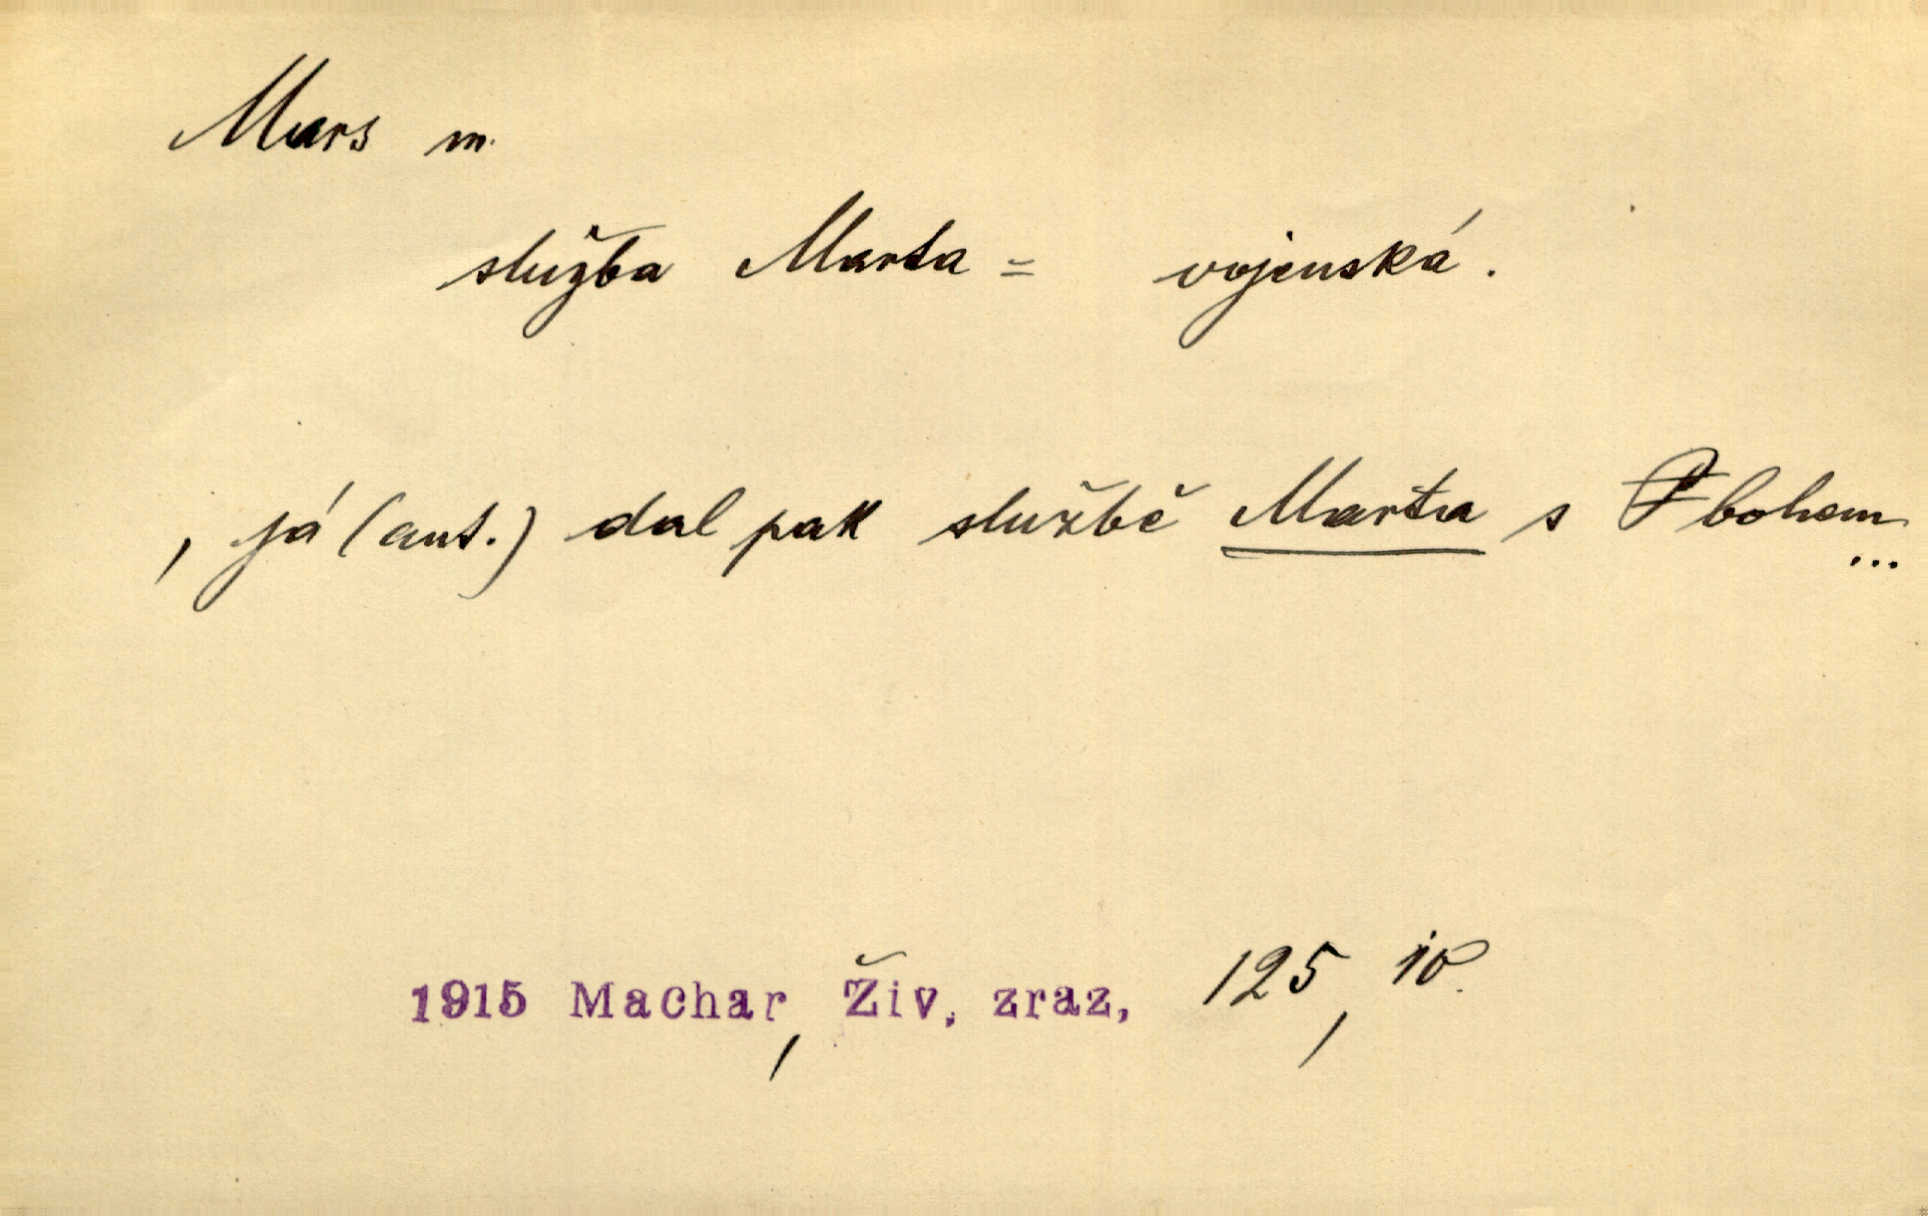 Mars m.
služba Marta = vojenská.
, já (aut.) dal pak službě Marta s Bohem
...
1915 Machar, Živ. zraz, 125, 10.